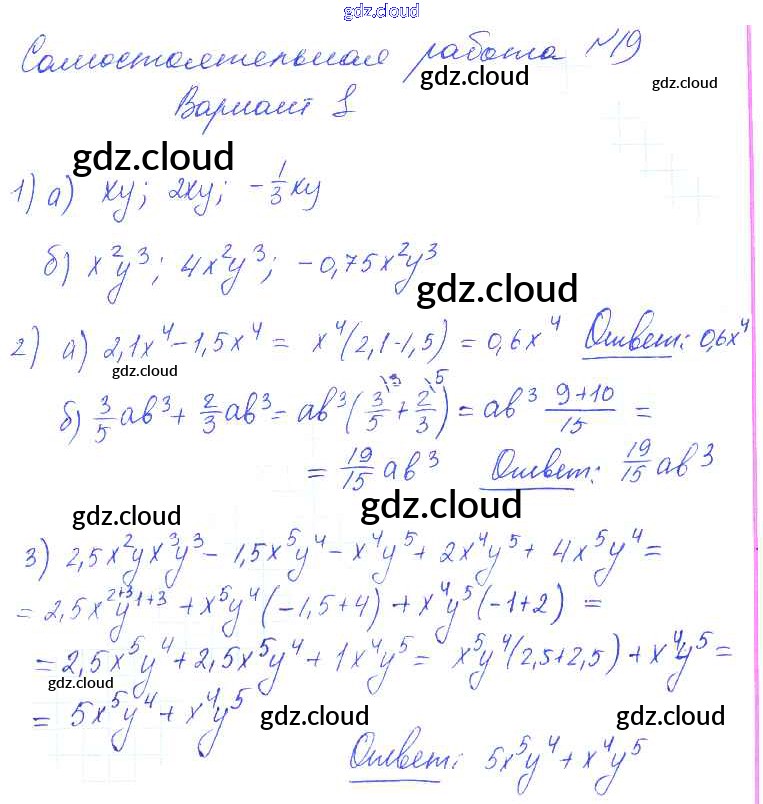 gdz.cloud
Самостоятельная работа №19
gdz.cloud gdz.cloud
Вариант 1
gdz.cloud
1) а) xy; 2xy; -1/3 xy
б) x²y³; 4x²y³; -0,75x²y³
gdz.cloud
2) а) 2,1x⁴ - 1,5x⁴ = x⁴(2,1-1,5) = 0,6x⁴ Ответ: 0,6x⁴
gdz.cloud
б) 3/5 ab³ + 2/3 ab³ = ab³(3/5 \3 + 2/3 \5) = ab³ (9+10)/15 =
= 19/15 ab³ Ответ: 19/15 ab³
gdz.cloud gdz.cloud
3) 2,5x²yx³y³ - 1,5x⁵y⁴ - x⁴y⁵ + 2x⁴y⁵ + 4x⁵y⁴ =
= 2,5x²⁺³y¹⁺³ + x⁵y⁴(-1,5+4) + x⁴y⁵(-1+2) =
= 2,5x⁵y⁴ + 2,5x⁵y⁴ + 1x⁴y⁵ = x⁵y⁴(2,5+2,5) + x⁴y⁵ =
gdz.cloud
= 5x⁵y⁴ + x⁴y⁵
gdz.cloud gdz.cloud
Ответ: 5x⁵y⁴ + x⁴y⁵